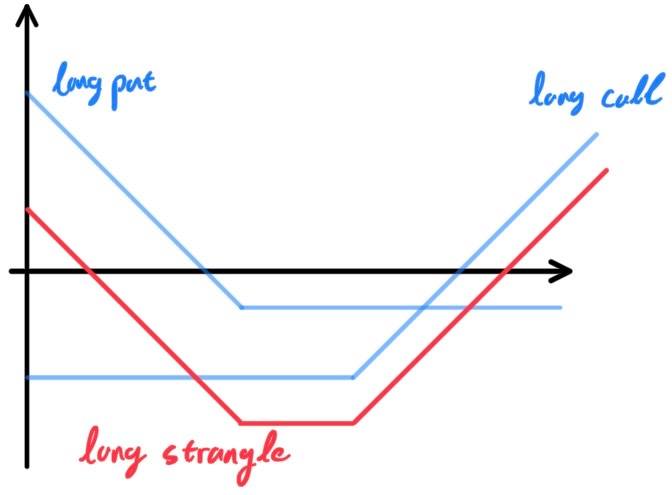 long put
long call
long strangle